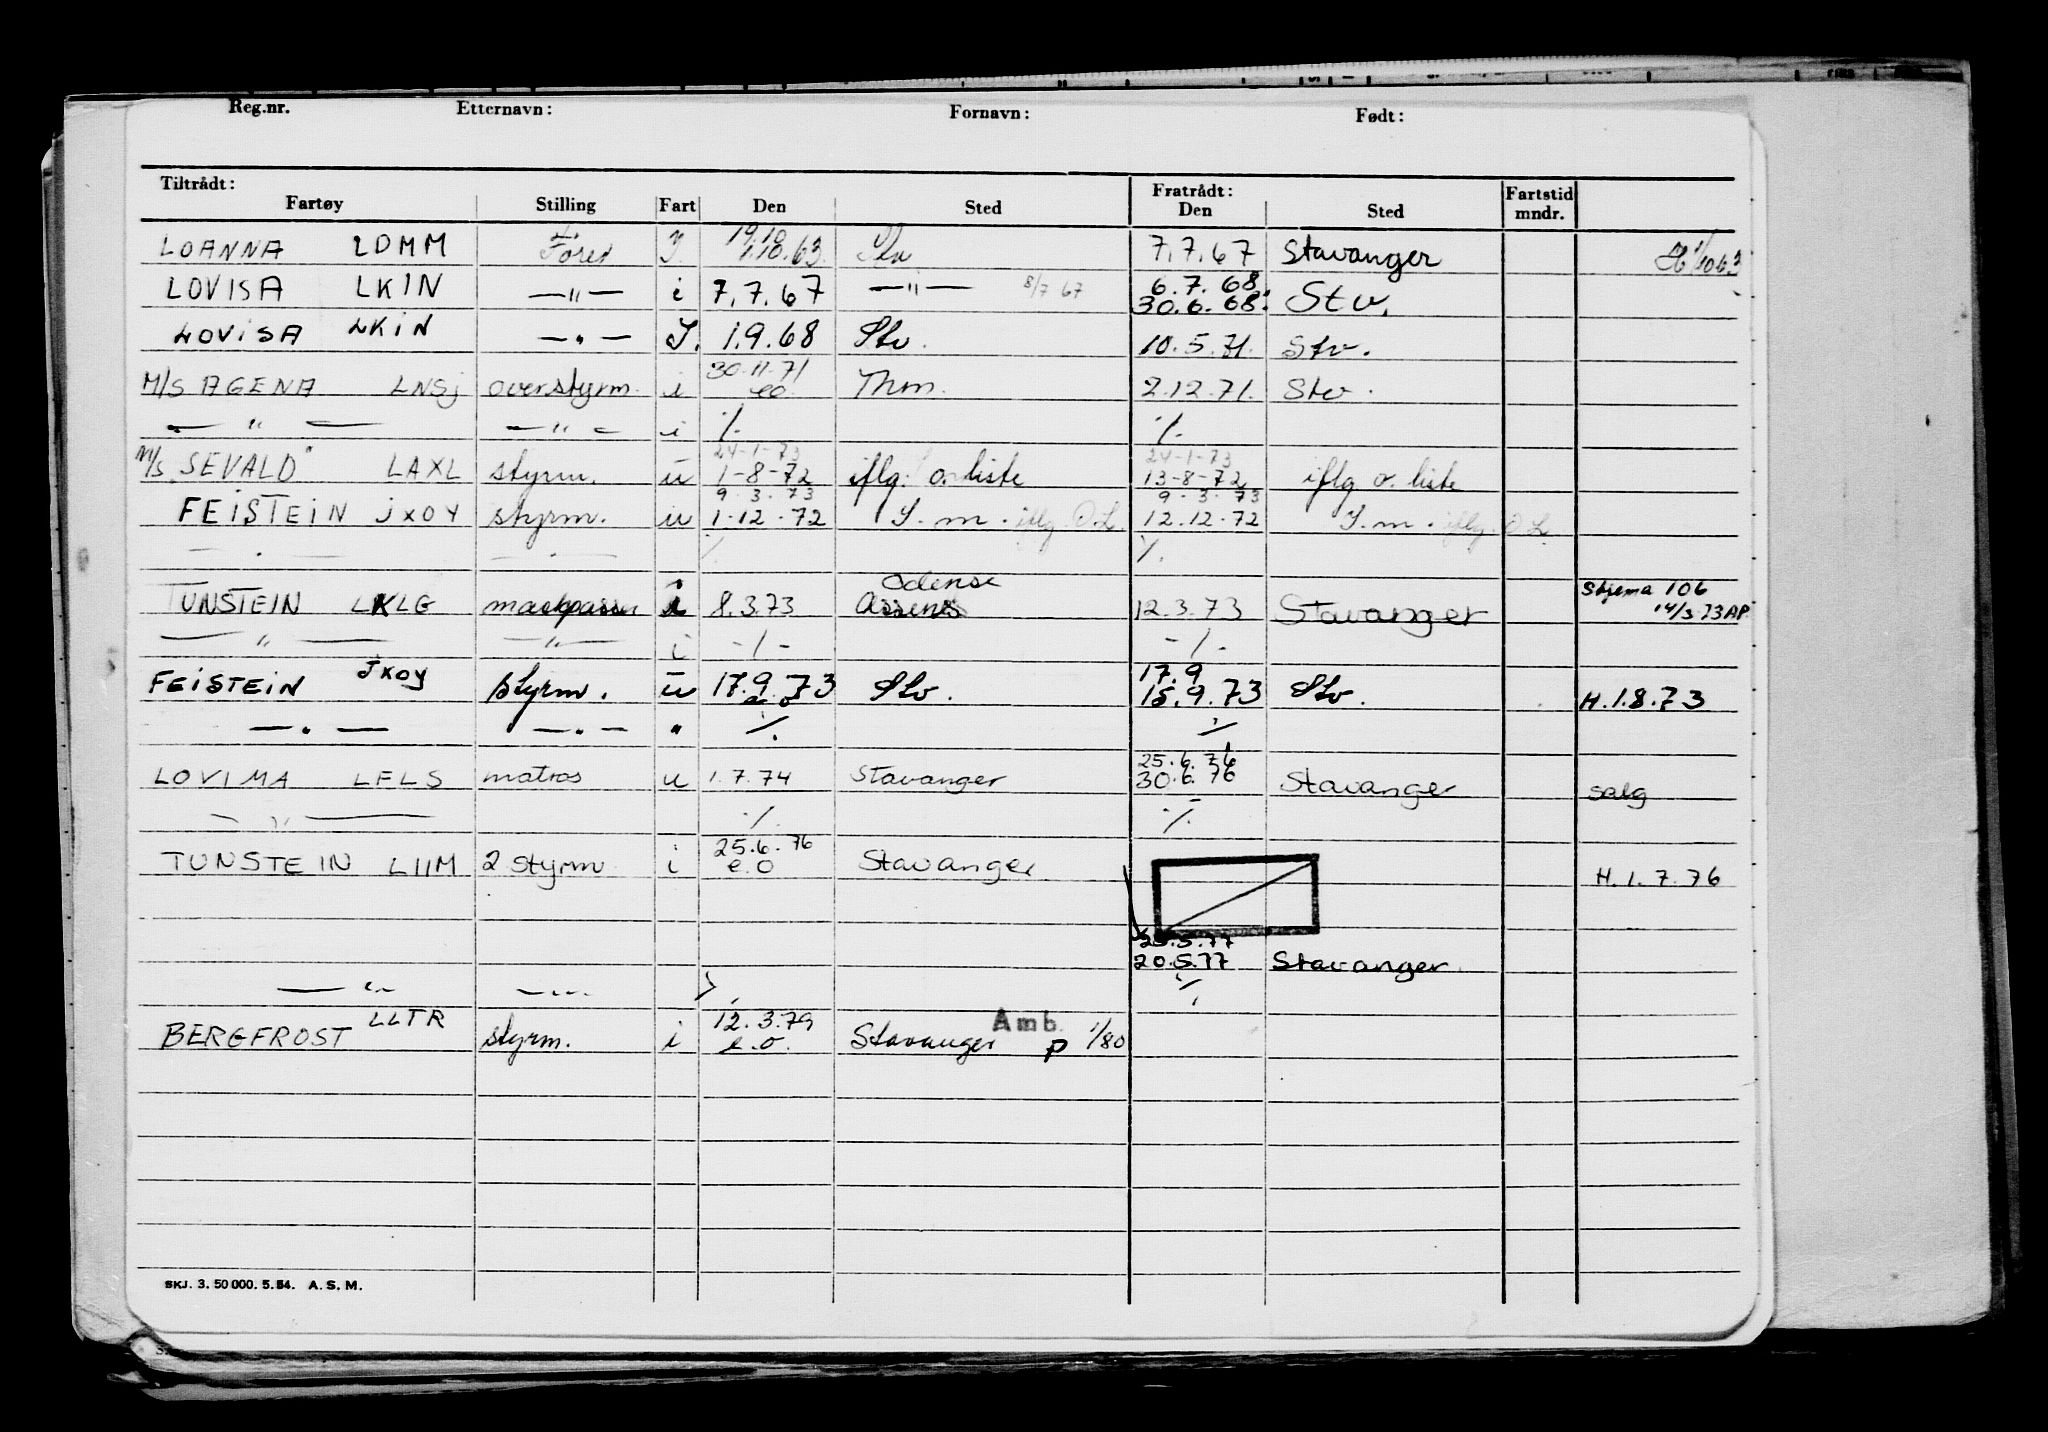 Reg.nr. Etternavn: Fornavn: Født:
Tiltrådt: Fratrådt:
Fartøy Stilling Fart Den Sted Den Sted Fartstid mndr.
19.10
LOANNA LDMM Fører I. 1.10.63. Stv 7.7.67 Stavanger H 1/10 63
LOVISA LKIN —"— i 7.7.67 —"— 8/7 67 6.7.68
30.6.68. Stv.
LOVISA LKIN —"— I. 1.9.68 Stv. 10.5.71. Stv.
30.11.71
M/S AGENA LNSJ overstyrm. i eo Thm. 2.12.71. Stv.
—"— —"— i ./. ./.
24-1-73 24-1-73
M/S "SEVALD" LAXL styrm. u 1-8-72 iflg. o. liste 13-8-72 iflg o. liste
9.3.73 9.3.73
FEISTEIN JXOY styrm. u 1-12-72 I.m. iflg. O.L. 12.12.72 I.m. iflg. O L.
—"— —"— ./. ./.
Odense Skjema 106
TUNSTEIN LKLG maskpasser i 8.3.73 Assens 12.3.73 Stavanger 14/3.73 AP
—"— —"— i -/- -/-
17.9
FEISTEIN JXOY styrm. u 17.9.73 Stv. 15.9.73 Stv. H.1.8.73
e o
—"— —"— " ./. ./.
25.6.76
LOVIMA LFLS matros u 1.7.74 Stavanger 30.6.76 Stavanger salg
—"— ./. ./.
25.6.76
TUNSTEIN LIIM 2 styrm i e.o Stavanger H.1.7.76
25.5.77
20.5.77 Stavanger.
—"— —"— ./. ./.
LLTR 12.3.79 Amb.
BERGFROST styrm. i e.o. Stavanger p 1/80
SKJ. 3. 50 000. 5. 54. A. S. M.